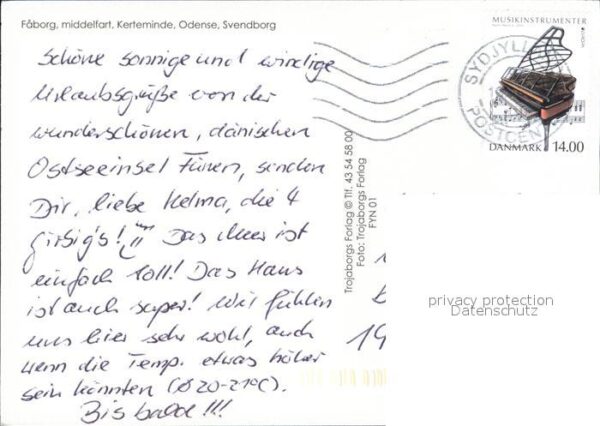 Fåborg, middelfart, Kerteminde, Odense, Svendborg
MUSIKINSTRUMENTER
SYDJYLL
POSTCEN
DANMARK 14.00
Schöne sonnige und windige
Urlaubsgrüße von der
wunderschönen, dänischen
Ostseeinsel Fünen, senden
Dir, liebe Helma, die 4
Das Meer ist
einfach toll! Das Haus
ist auch super! Wir fühlen
uns hier sehr wohl, auch
wenn die Temp. etwas höher
sein könnten (Ø 20-21°C).
Bis bald!!!
Trojaborgs Forlag © Tlf. 43 54 58 00
Foto: Trojaborgs Forlag
FYN 01
19
privacy protection
Datenschutz